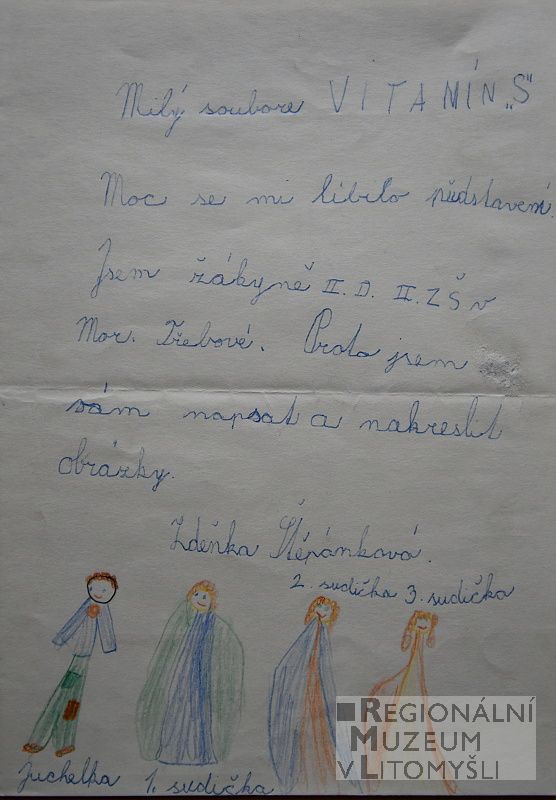 Milý soubore VITAMÍN „S"
Moc se mi líbilo představení.
Jsem žákyně II. D. II. ZŠ v
Mor. Třebové. Proto jsem
vám napsat a nakreslit
obrázky.
Zdeňka Štěpánková.
2. sudička 3. sudička
Juchelka 1. sudička
REGIONÁLNÍ
MUZEUM
V LITOMYŠLI